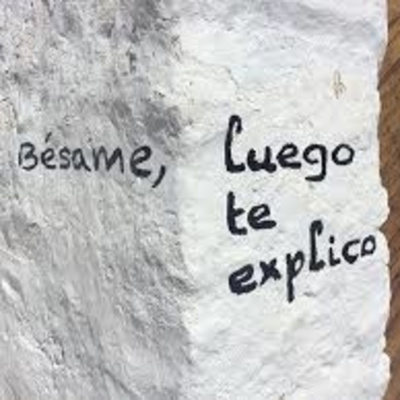 Bésame, luego
te
explico